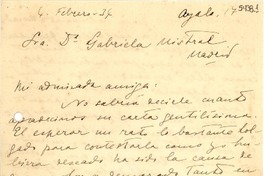 6. Febrero-34 Ayala, 17
Sra. Dª Gabriela Mistral
Madrid
Mi admirada amiga:
No sabría decirle cuanto
agradecemos su carta gentilísima.
El esperar un rato lo bastante hol-
gado para contestarla como yo hu-
biera deseado ha sido la causa de
tanto en